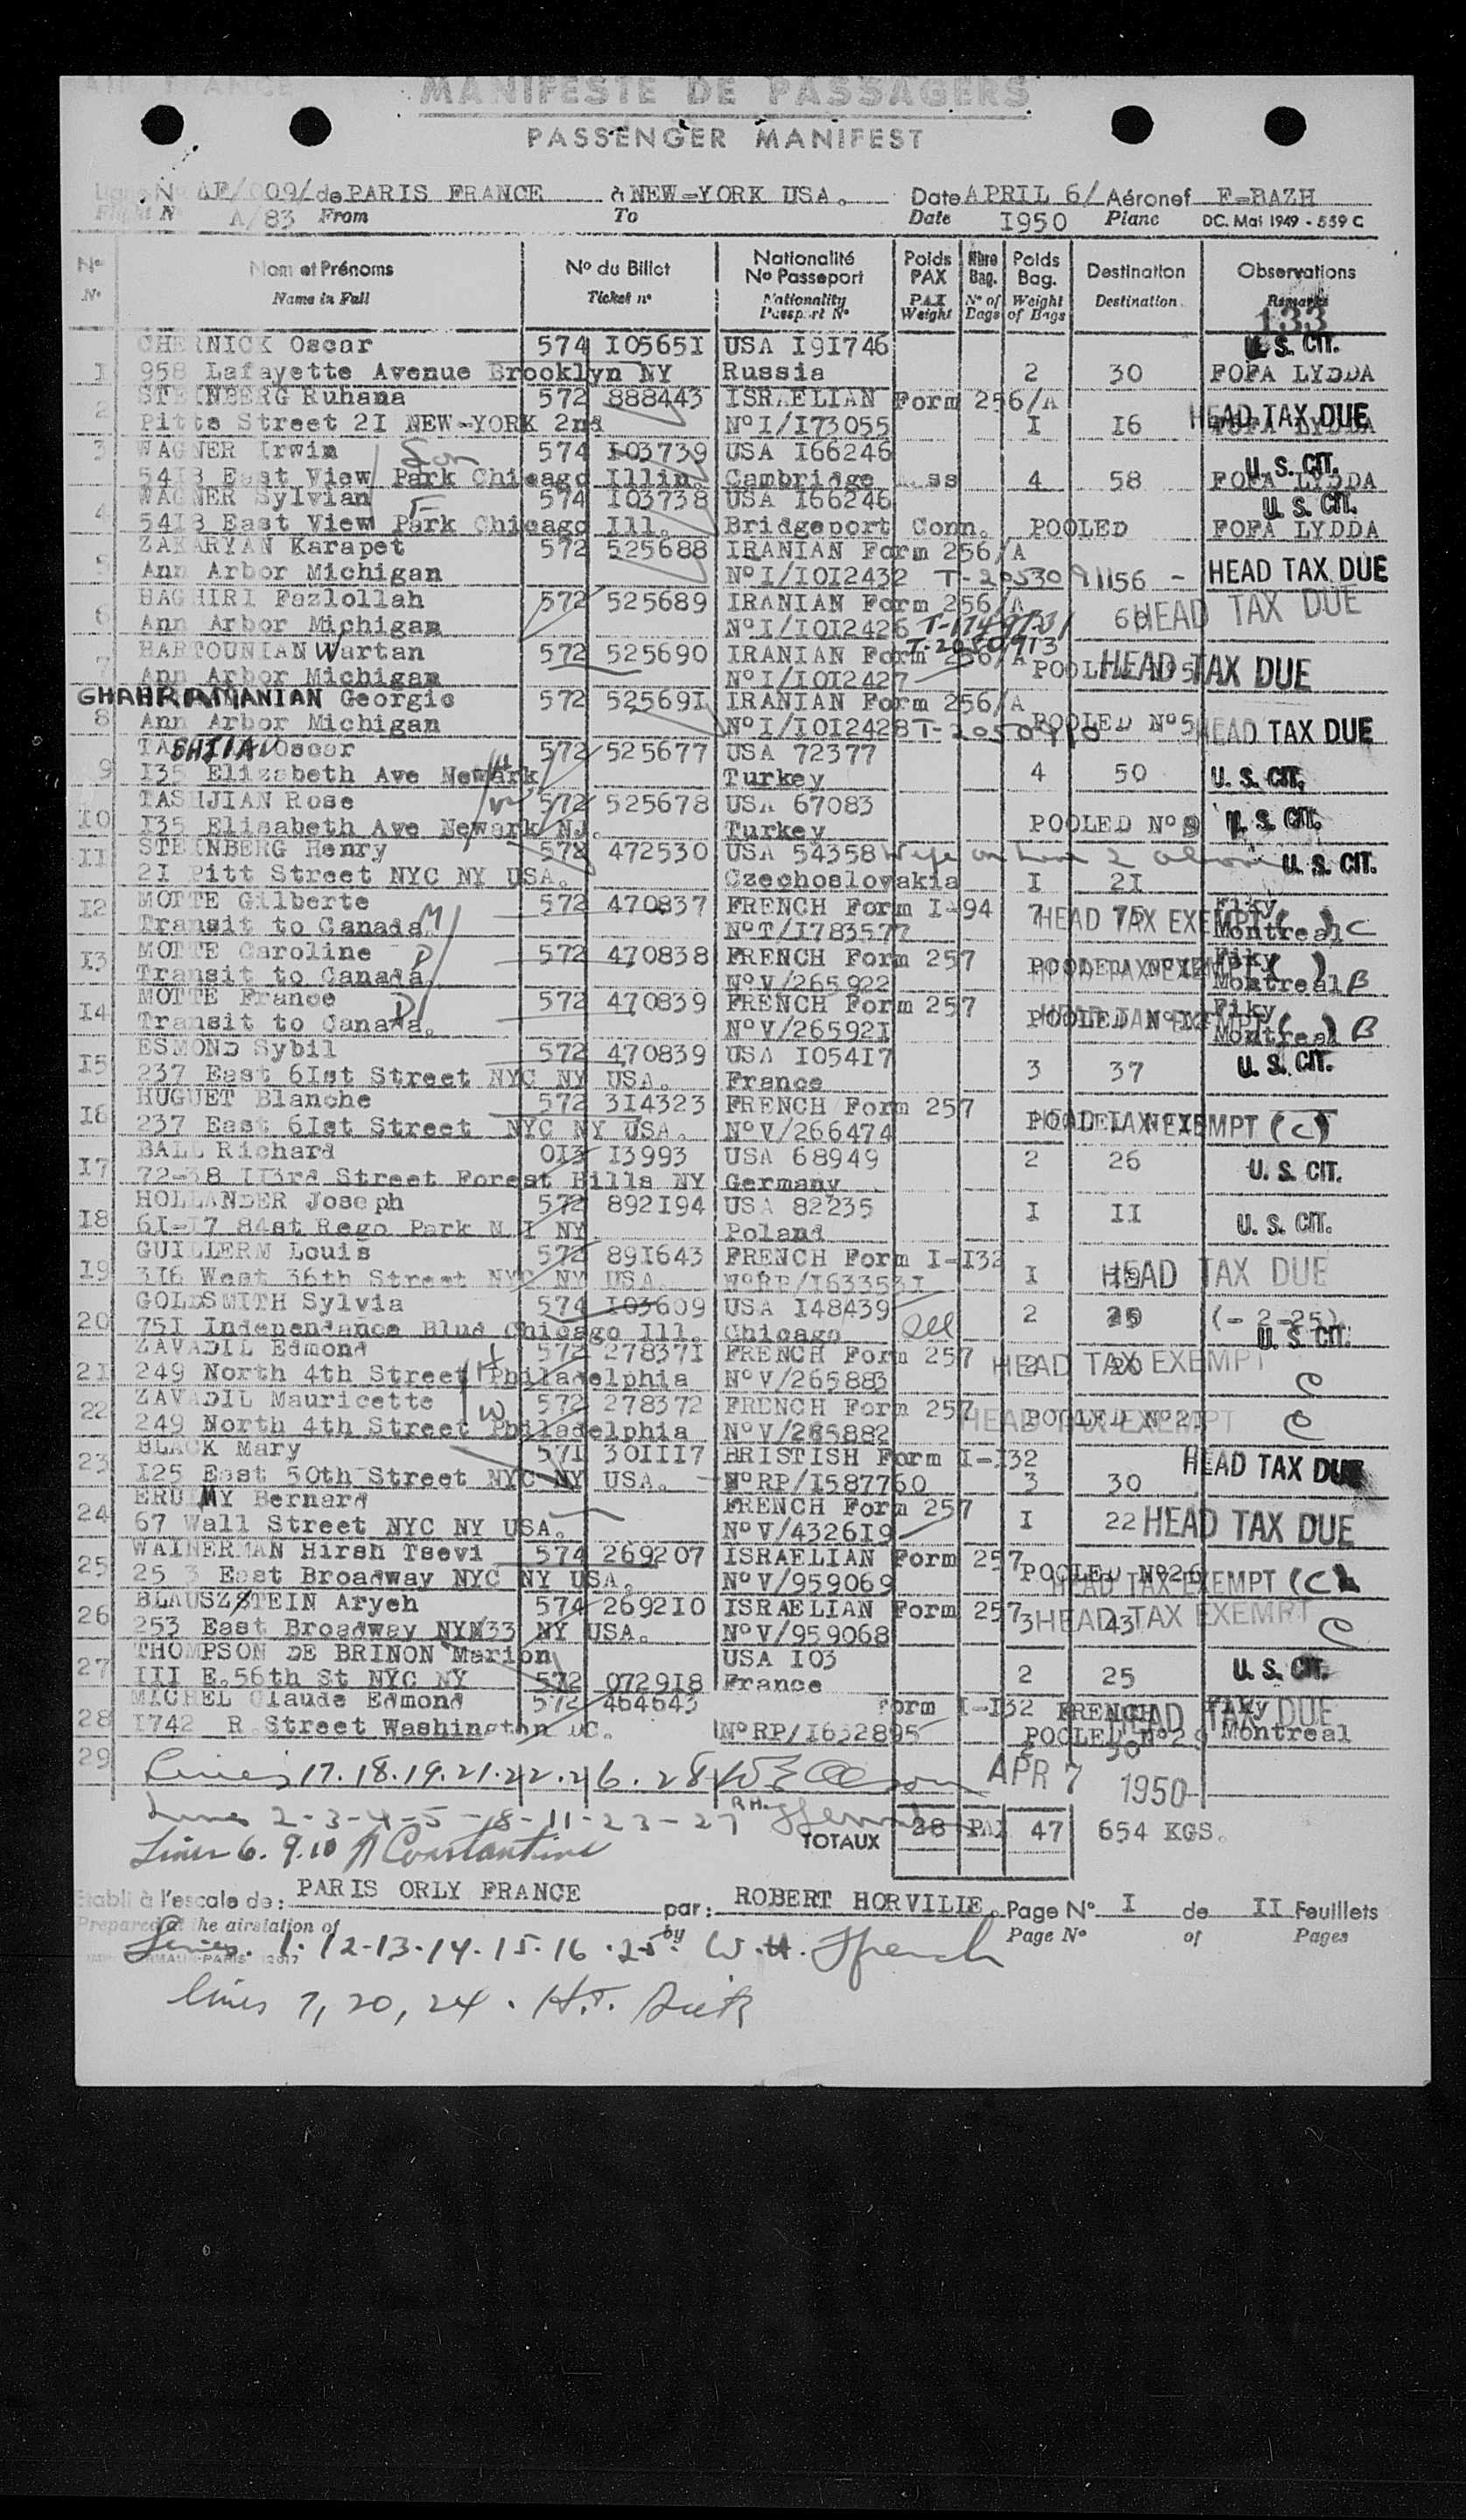 AIR FRANCE
MANIFESTE DE PASSAGERS
PASSENGER MANIFEST
Ligne No AF/009/ de PARIS FRANCE à NEW-YORK USA. Date APRIL 6/ Aéronef F-BAZH
Flight N A/83 From To Date 1950 Plane DC. Mai 1949 - 559 C
No Nom et Prénoms No du Billet Nationalité No Passeport Poids PAX Nbre Bag. Poids Bag. Destination Observations
No Name in Full Ticket no Nationality Passport No PAX Weight No of Bags Weight of Bags Destination Remarks
133
CHERNICK Oscar 574 I05651 USA I91746 U. S. CIT.
1 958 Lafayette Avenue Brooklyn NY Russia 2 30 FOFA LYDDA
STEINBERG Ruhana 572 888443 ISRAELIAN Form 256/A
2 Pitts Street 2I NEW-YORK 2nd NoI/I73055 I I6 FOFA LYDDA HEAD TAX DUE
3 WAGNER Irwin Son 574 I03739 USA I66246 U. S. CIT.
54I8 East View Park Chicago Illin. Cambridge Mass 4 58 FOFA LYDDA
WAGNER Sylvian F 574 I03738 USA I66246 U. S. CIT.
4 54I8 East View Park Chicago Ill. Bridgeport Conn. POOLED FOFA LYDDA
ZAKARYAN Karapet 572 525688 IRANIAN Form 256/A
5 Ann Arbor Michigan NoI/I0I2432 T-2050911 56 - HEAD TAX DUE
BAGHIRI Fazlollah 572 525689 IRANIAN Form 256/A
6 Ann Arbor Michigan NoI/I0I2426 HEAD TAX DUE
T-2050913
HARTOUNIAN Wartan 572 525690 IRANIAN Form 256/A
7 Ann Arbor Michigan NoI/I0I2427 POOLED No5 HEAD TAX DUE
GHAHRAMANIAN Georgio 572 52569I IRANIAN Form 256/A
8 Ann Arbor Michigan NoI/I0I2428 T-2050910 POOLED No5 HEAD TAX DUE
TASHJIAN Oscar 572 525677 USA 72377
9 I35 Elizabeth Ave Newark H Turkey 4 50 U. S. CIT.
TASHJIAN Rose W 572 525678 USA 67083
I0 I35 Elisabeth Ave Newark NJ. Turkey POOLED No 9 U. S. CIT.
II STEINBERG Henry 572 472530 USA 54358 Wife on line 2 above U. S. CIT.
2I Pitt Street NYC NY USA. Czechoslovakia I 2I
I2 MOTTE Gilberte M 572 470837 FRENCH Form I-94 7 75 HEAD TAX EXEMPT ( ) C Fiky
Transit to Canada NoT/I783577 Montreal
I3 MOTTE Caroline D 572 470838 FRENCH Form 257 POOLED No I2 HEAD TAX EXEMPT ( ) Fiky
Transit to Canada NoV/265922 Montreal B
I4 MOTTE France D 572 470839 FRENCH Form 257 POOLED No I2 HEAD TAX EXEMPT ( ) Fiky
Transit to Canada. NoV/26592I Montreal B
I5 ESMOND Sybil 572 470839 USA I054I7 U. S. CIT.
237 East 6Ist Street NYC NY USA. France 3 37
I6 HUGUET Blanche 572 3I4323 FRENCH Form 257
237 East 6Ist Street NYC NY USA. NoV/266474 HEAD TAX EXEMPT (C)
I7 BALL Richard 0I3 I3993 USA 68949 2 26
72-38 II3rd Street Forest Hills NY Germany U. S. CIT.
I8 HOLLANDER Joseph 572 892I94 USA 82235 I II
6I-I7 84st Rego Park N I NY Poland U. S. CIT.
GUILLERM Louis 572 89I643 FRENCH Form I-I32
I9 3I6 West 36th Street NYC NY USA. NoRP/I63353I I HEAD TAX DUE
GOLDSMITH Sylvia 574 I03609 USA I48439 2 (- 2-25)
20 75I Independance Blud Chicago Ill. Chicago U. S. CIT.
ZAVADIL Edmond H 572 27837I FRENCH Form 257 HEAD TAX EXEMPT
2I 249 North 4th Street Philadelphia NoV/265883 C
ZAVADIL Mauricette W 572 278372 FRENCH Form 257 POOLED No2I HEAD TAX EXEMPT
22 249 North 4th Street Philadelphia NoV/265882 C
23 BLACK Mary 571 30III7 BRISTISH Form I-I32 HEAD TAX DUE
I25 East 50th Street NYC NY USA. NoRP/I587760 3 30
24 ERULMY Bernard FRENCH Form 257
67 Wall Street NYC NY USA. NoV/4326I9 I 22 HEAD TAX DUE
25 WAINERMAN Hirsh Tsevi 574 269207 ISRAELIAN Form 257 POOLED No26
25 3 East Broadway NYC NY USA. NoV/959069 HEAD TAX EXEMPT (C)
26 BLAUSZSTEIN Aryeh 574 2692I0 ISRAELIAN Form 257 3 43 HEAD TAX EXEMPT
253 East Broadway NYN33 NY USA. NoV/959068 C
27 THOMPSON DE BRINON Marion USA I03
III E.56th St NYC NY 572 0729I8 France 2 25 U. S. CIT.
MICHEL Claude Edmond 572 464643 Form I-I32 FRENCH HEAD TAX DUE Fiky
28 I742 R.Street Washington DC. NoRP/I632895 POOLED No29 Montreal
29 Lines 17.18.19.21.22.26.28 APR 7 1950
Lines 2-3-4-5-8-11-23-27
TOTAUX 28 PAX 47 654 KGS.
Lines 6.9.10 Constantine
Etabli à l'escale de: PARIS ORLY FRANCE par: ROBERT HORVILLE. Page No I de II Feuillets
Prepared at the airstation of by Page No of Pages
Lines. 1.12-13-14.15.16.25. W.H. French
lines 7, 20, 24. H.J.